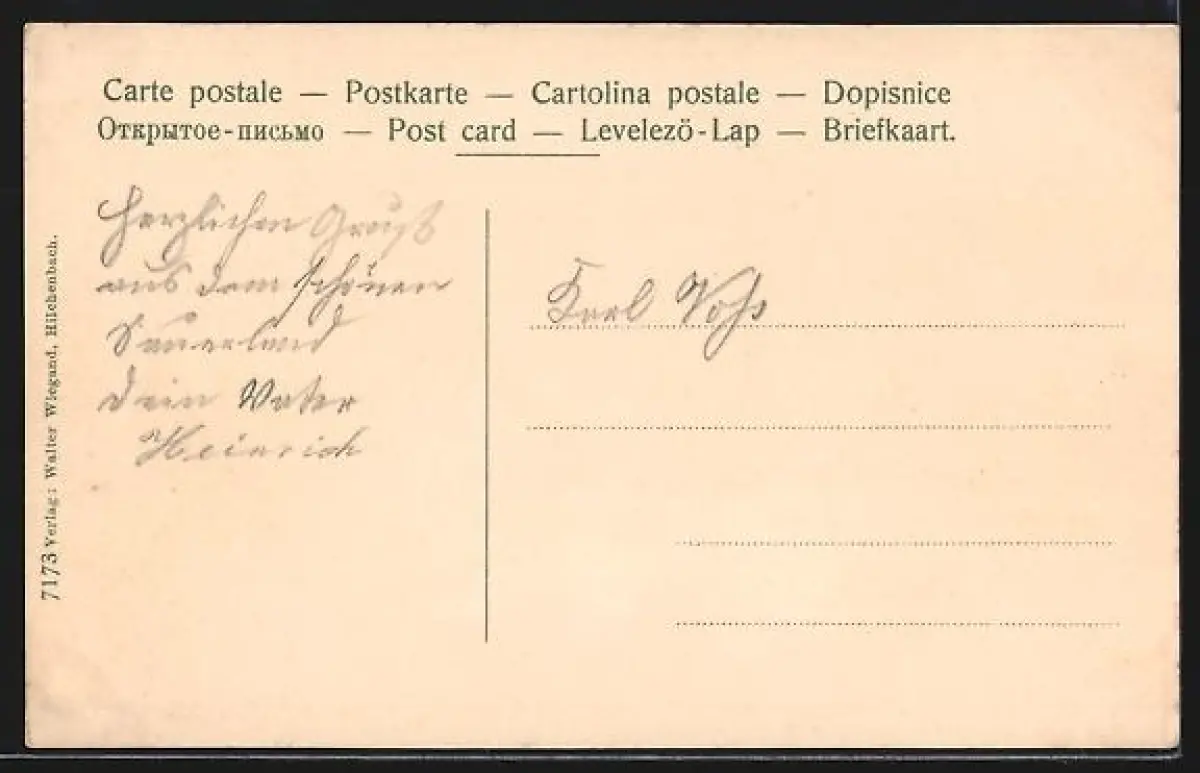 Carte postale — Postkarte — Cartolina postale — Dopisnice
Открытое-письмо — Post card — Levelezö-Lap — Briefkaart.
Herzlichen Gruß
aus dem schönen
Sauerland
Dein Vater
Heinrich
Karl Voß
7173 Verlag: Walter Wiegand, Hilchenbach.